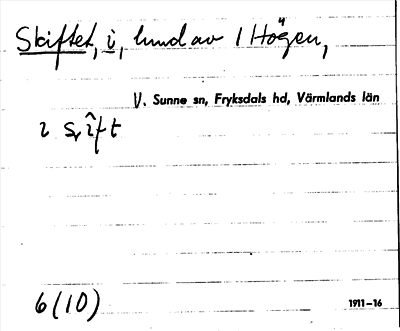 Skiftet, i, lund av 1 Högen,
V. Sunne sn, Fryksdals hd, Värmlands län
6(10)
1911–16